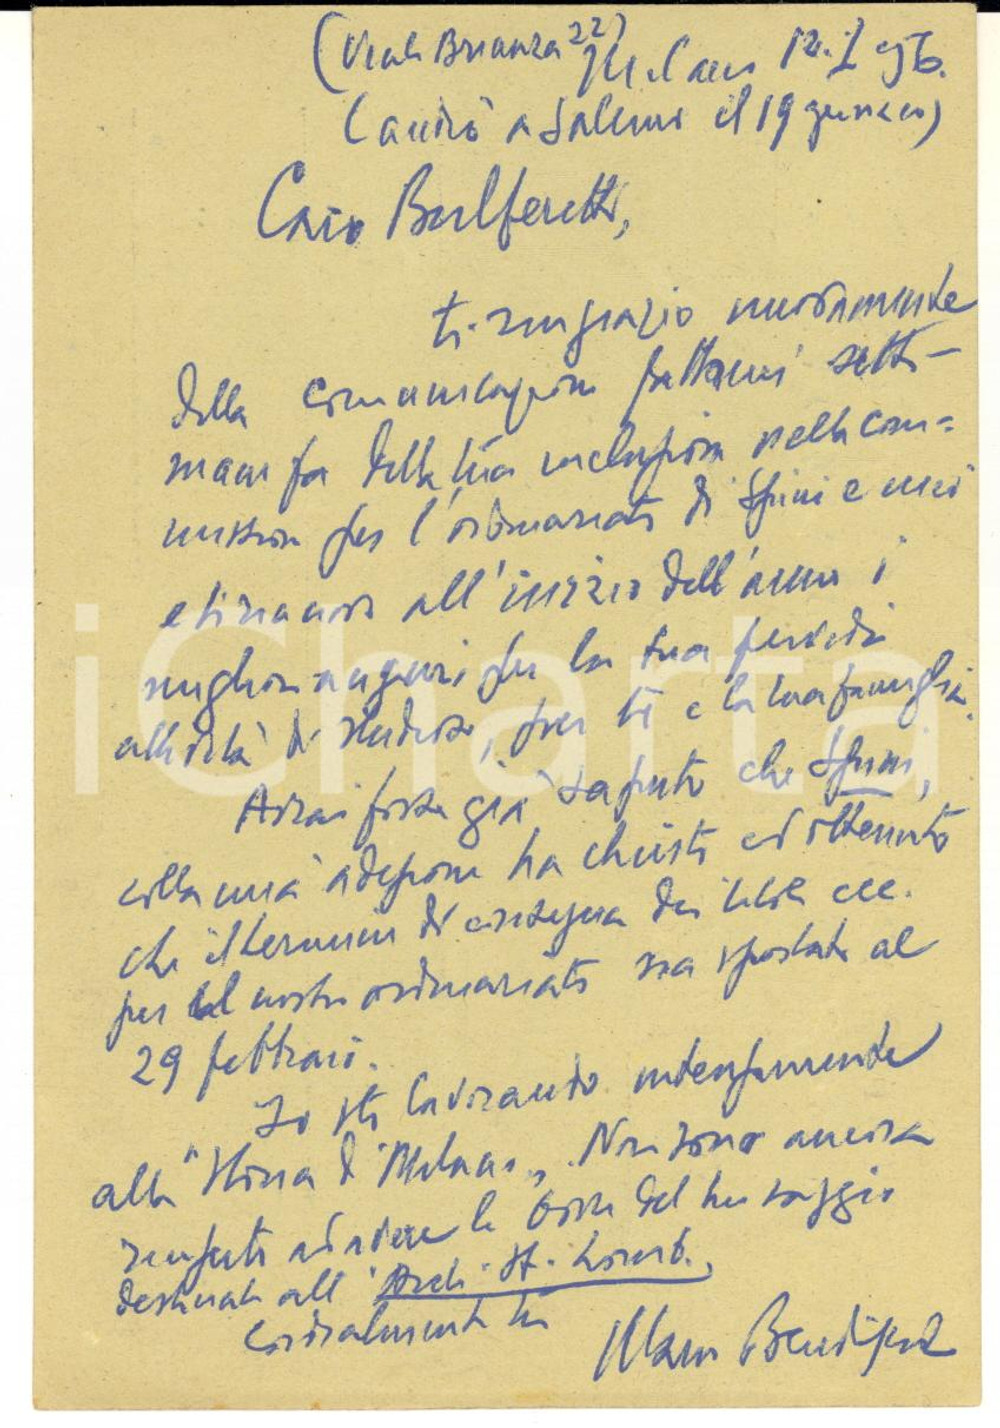 (Viale Brianza 22) Milano 12.I.956.
(andrò a Salerno il 19 gennaio)
Caro Bulferetti,
ti ringrazio nuovamente
della comunicazione fattami setti-
mane fa della tua inclusione nella com=
missione per l'ordinariato di Spini e mio
e ti rinnovo all'inizio dell'anno i
migliori auguri per la tua feconda
attività di studioso, per te e la tua famiglia.
Avrai forse già saputo che Spini,
colla mia adesione ha chiesto ed ottenuto
che il termine di consegna dei titoli ecc.
per il nostro ordinariato sia spostato al
29 febbraio.
Io sto lavorando intensamente
alla "Storia di Milano". Non sono ancora
riuscito ad avere le bozze del tuo saggio
destinato all'Arch. St. Lomb.,
cordialmente tuo
Mario Bendiscioli
iCharta